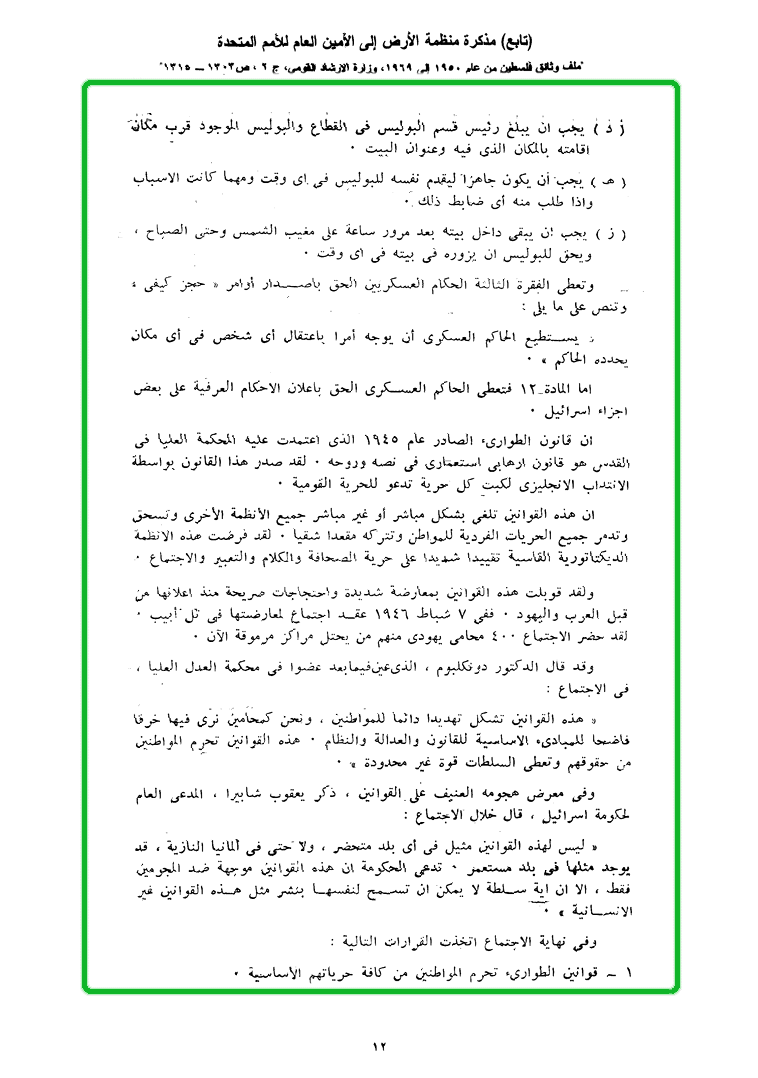 (تابع) مذكرة منظمة الأرض إلى الأمين العام للأمم المتحدة
"ملف وثائق فلسطين من عام ١٩٥٠ إلى ١٩٦٩، وزارة الارشاد القومى، ج ٢ ، ص ١٣٠٣ – ١٣١٥"
( د ) يجب ان يبلغ رئيس قسم البوليس فى القطاع والبوليس الموجود قرب مكان
اقامته بالمكان الذى فيه وعنوان البيت .
( هـ ) يجب أن يكون جاهزا ليقدم نفسه للبوليس فى اى وقت ومهما كانت الاسباب
واذا طلب منه أى ضابط ذلك .
( ز ) يجب ان يبقى داخل بيته بعد مرور ساعة على مغيب الشمس وحتى الصباح ،
ويحق للبوليس ان يزوره فى بيته فى اى وقت .
وتعطى الفقرة الثالثة الحكام العسكريين الحق باصدار أوامر « حجز كيفى »
وتنص على ما يلى :
« يستطيع الحاكم العسكرى أن يوجه أمرا باعتقال أى شخص فى أى مكان
يحدده الحاكم » .
اما المادة ١٢ فتعطى الحاكم العسكرى الحق باعلان الاحكام العرفية على بعض
اجزاء اسرائيل .
ان قانون الطوارىء الصادر عام ١٩٤٥ الذى اعتمدت عليه المحكمة العليا فى
القدس هو قانون ارهابى استعمارى فى نصه وروحه . لقد صدر هذا القانون بواسطة
الانتداب الانجليزى لكبت كل حرية تدعو للحرية القومية .
ان هذه القوانين تلغى بشكل مباشر أو غير مباشر جميع الأنظمة الأخرى وتسحق
وتدمر جميع الحريات الفردية للمواطن وتتركه مقعدا شقيا . لقد فرضت هذه الانظمة
الديكتاتورية القاسية تقييدا شديدا على حرية الصحافة والكلام والتعبير والاجتماع .
ولقد قوبلت هذه القوانين بمعارضة شديدة واحتجاجات صريحة منذ اعلانها من
قبل العرب واليهود . ففى ٧ شباط ١٩٤٦ عقد اجتماع لمعارضتها فى تل أبيب .
لقد حضر الاجتماع ٤٠٠ محامى يهودى منهم من يحتل مراكز مرموقة الآن .
وقد قال الدكتور دونكلبوم ، الذى عين فيما بعد عضوا فى محكمة العدل العليا ،
فى الاجتماع :
« هذه القوانين تشكل تهديدا دائما للمواطنين ، ونحن كمحامين نرى فيها خرقا
فاضحا للمبادىء الاساسية للقانون والعدالة والنظام . هذه القوانين تحرم المواطنين
من حقوقهم وتعطى السلطات قوة غير محدودة » .
وفى معرض هجومه العنيف على القوانين ، ذكر يعقوب شابيرا ، المدعى العام
لحكومة اسرائيل ، قال خلال الاجتماع :
« ليس لهذه القوانين مثيل فى أى بلد متحضر ، ولا حتى فى ألمانيا النازية ، قد
يوجد مثلها فى بلد مستعمر . تدعى الحكومة ان هذه القوانين موجهة ضد المجرمين
فقط ، الا ان اية سلطة لا يمكن ان تسمح لنفسها بنشر مثل هذه القوانين غير
الانسانية » .
وفى نهاية الاجتماع اتخذت القرارات التالية :
١ – قوانين الطوارىء تحرم المواطنين من كافة حرياتهم الأساسية .
١٢